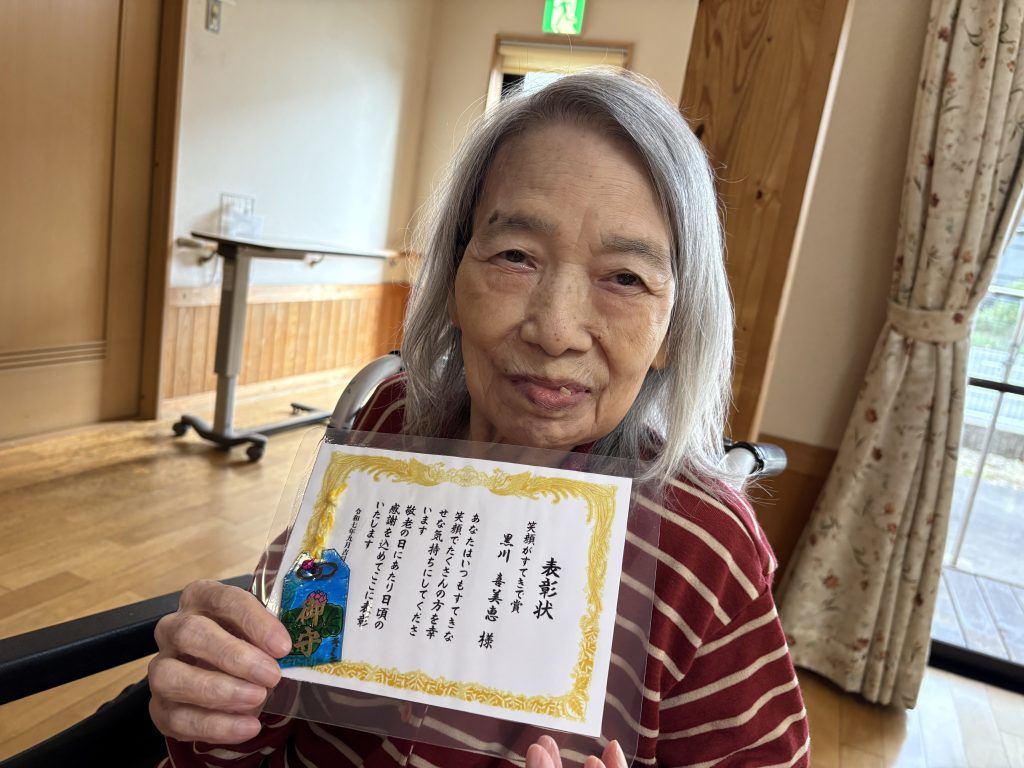 表彰状
笑顔がすてきで賞
黒川 喜美恵 様
あなたはいつもすてきな
笑顔でたくさんの方を幸
せな気持ちにしてくださ
います
敬老の日にあたり日頃の
感謝を込めてここに表彰
いたします
令和七年九月吉日
御守